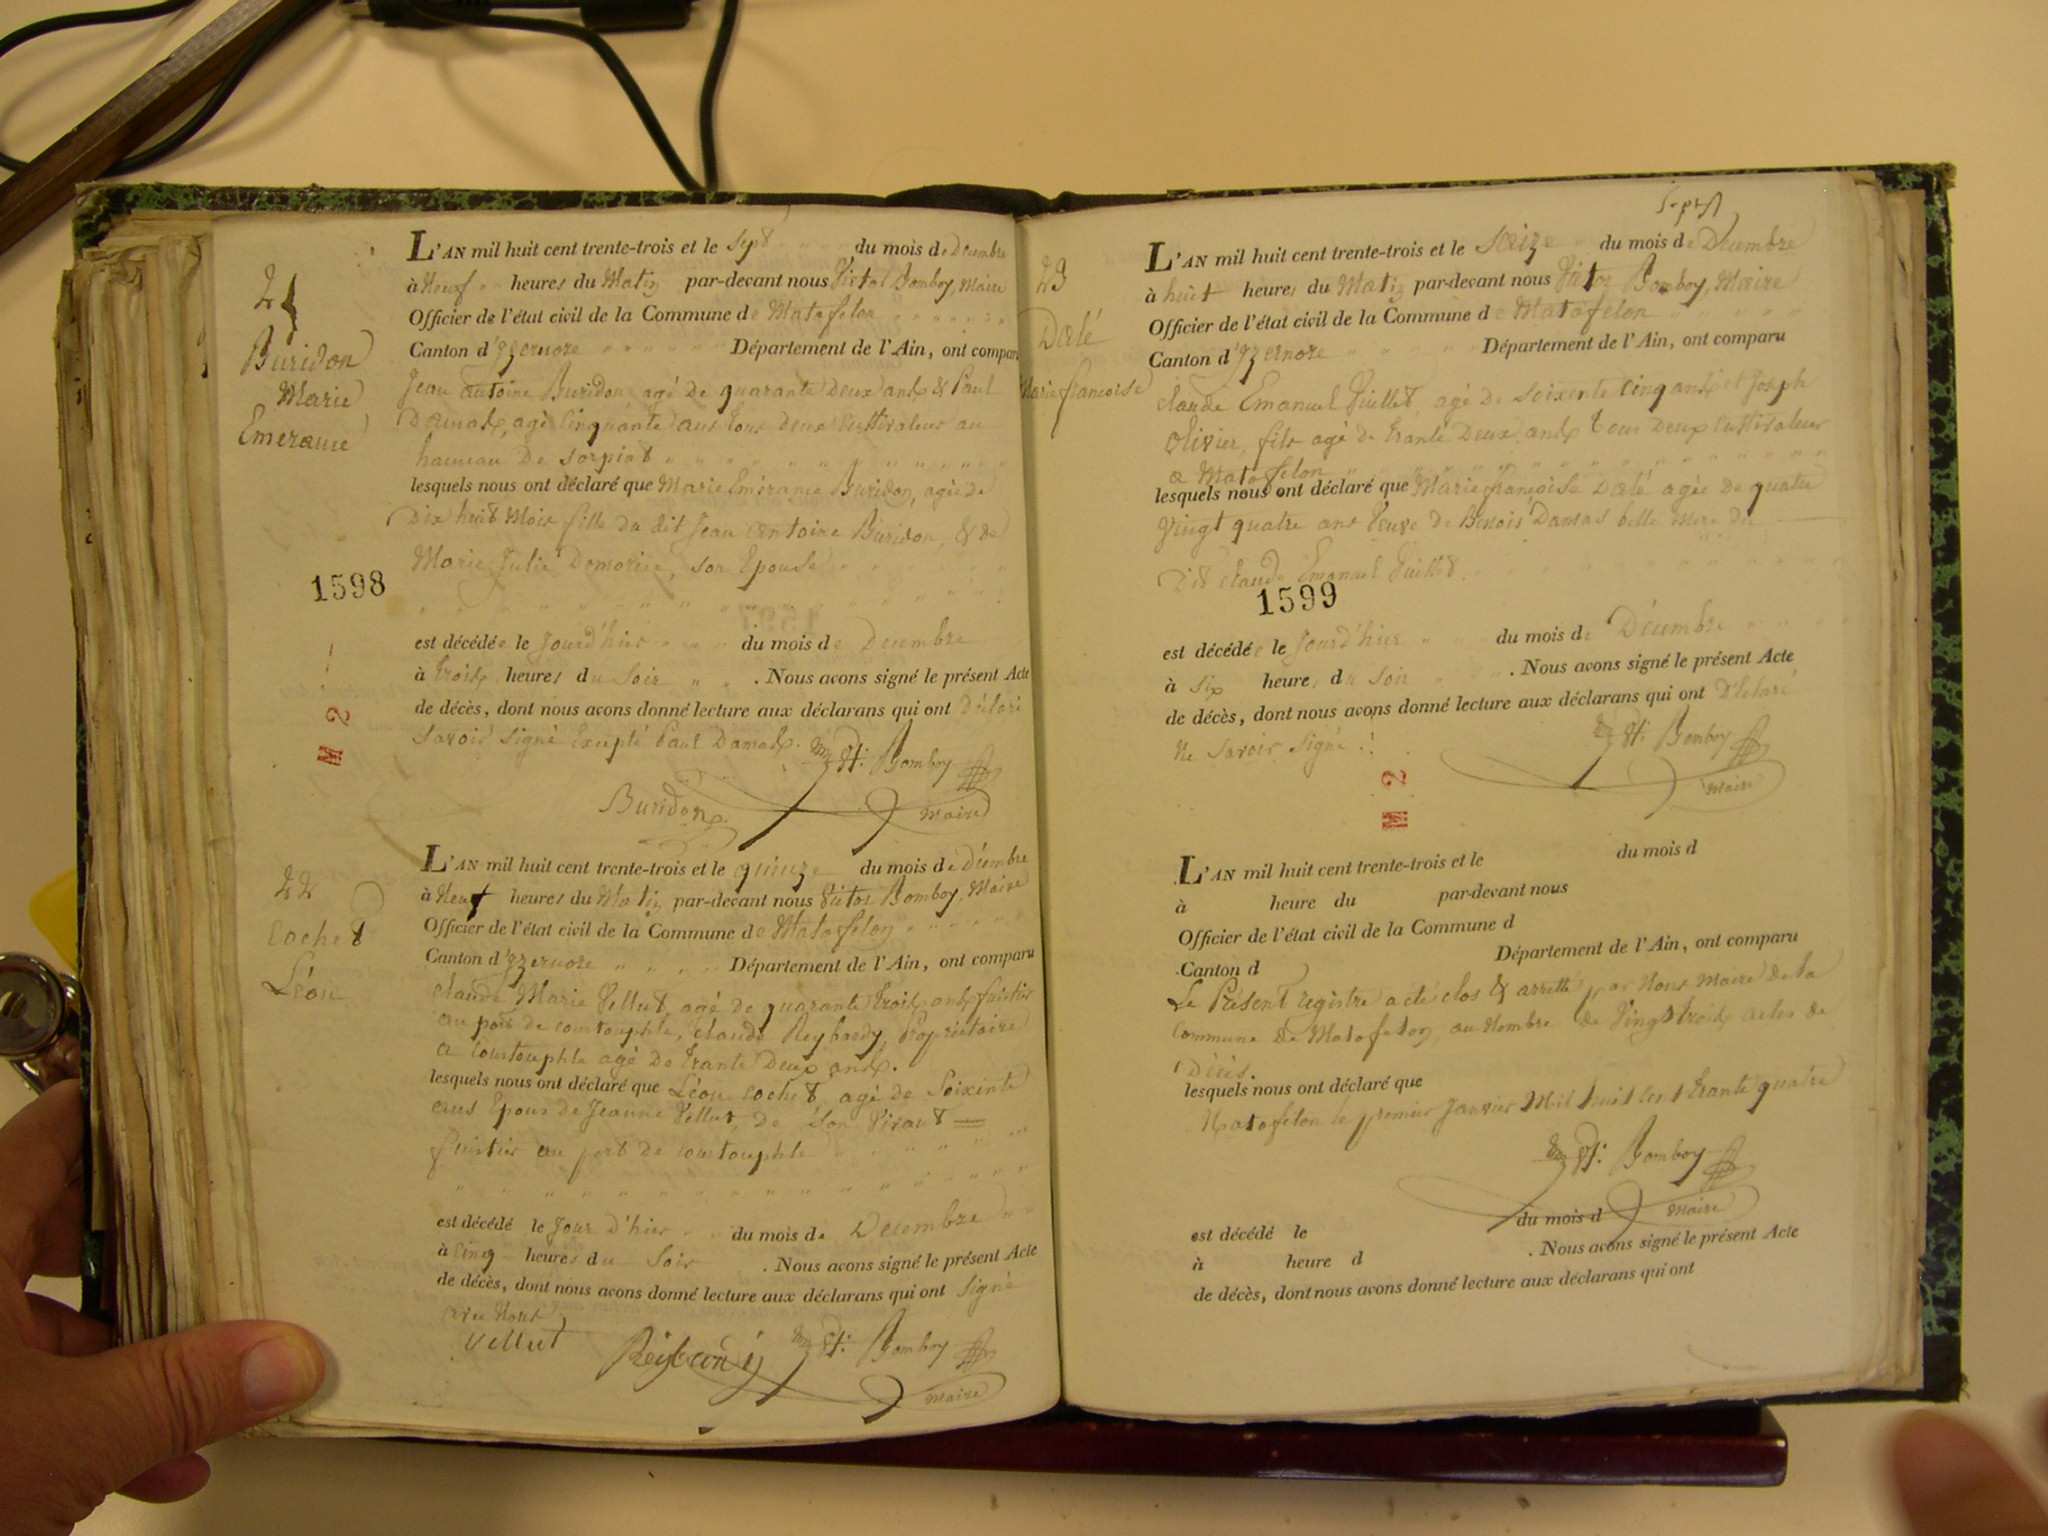 21
Buridon
Marie
Emerance
L'AN mil huit cent trente-trois et le Sept du mois de Décembre
à Neuf heures du Matin par-devant nous Victor Bomboy, Maire
Officier de l'état civil de la Commune de Matafelon
Canton d'Izernore Département de l'Ain, ont comparu
Jean antoine Buridon agé de quarante Deux ans & Paul
Damas, agé Cinquante ans tous deux Cultivateur au
hameau De Sorpiat
lesquels nous ont déclaré que Marie Emerance Buridon, agée de
Dix huit Mois fille du dit Jean antoine Buridon, & de
Marie Julie, son Epouse
1598
est décédée le Jourd'hier du mois de Décembre
à trois heures du Soir . Nous avons signé le présent Acte
de décès, dont nous avons donné lecture aux déclarans qui ont Déclaré
Savoir Signé Excepté Paul Damas.
Bomboy
Buridon
Maire
M 2
22
Cochet
Léon
L'AN mil huit cent trente-trois et le quinze du mois de Décembre
à Neuf heures du Matin par-devant nous Victor Bomboy, Maire
Officier de l'état civil de la Commune de Matafelon
Canton d'Izernore Département de l'Ain, ont comparu
Claude Marie Vellut, agé de quarante trois ans
au port de Courtouphle, Claude Reybardy, Propriétaire
a Courtouphle agé De trante Deux ans.
lesquels nous ont déclaré que Léon Cochet agé de Soixente
ans Epoux de Jeanne Vellut, de Son Vivant
au port de Courtouphle
est décédé le Jour d'hier du mois de Décembre
à Cinq heures du Soir . Nous avons signé le présent Acte
de décès, dont nous avons donné lecture aux déclarans qui ont Signé
avec Nous
Vellut Bomboy
Maire
23
Dalé
Marie françoise
L'AN mil huit cent trente-trois et le Seize du mois de Décembre
à huit heures du Matin par-devant nous Victor Bomboy, Maire
Officier de l'état civil de la Commune de Matafelon
Canton d'Izernore Département de l'Ain, ont comparu
Claude Emanuel Juillet agé de Soixente Cinq ans et Joseph
Olivier, fils agé de trante Deux ans tous Deux Cultivateur
a Matafelon
lesquels nous ont déclaré que Marie françoise Dalé agée De quatre
Vingt quatre ans Veuve de Benois Damas belle Mere du
Dit Claude Emanuel Juillet.
1599
est décédée le Jourd'hier du mois de Décembre
à Six heures du Soir . Nous avons signé le présent Acte
de décès, dont nous avons donné lecture aux déclarans qui ont Déclaré
Ne Savoir Signé.
Bomboy
Maire
M 2
L'AN mil huit cent trente-trois et le du mois d
à heure du par-devant nous
Officier de l'état civil de la Commune d
Canton d Département de l'Ain, ont comparu
Le Présent registre a été clos & arretté par Nous Maire De la
Commune De Matafelon, au Nombre de Vingt trois actes de
Décès.
lesquels nous ont déclaré que
Matafelon le premier Janvier Mil huit cent trante quatre
Bomboy
Maire
est décédé le du mois d
à heure d . Nous avons signé le présent Acte
de décès, dont nous avons donné lecture aux déclarans qui ont